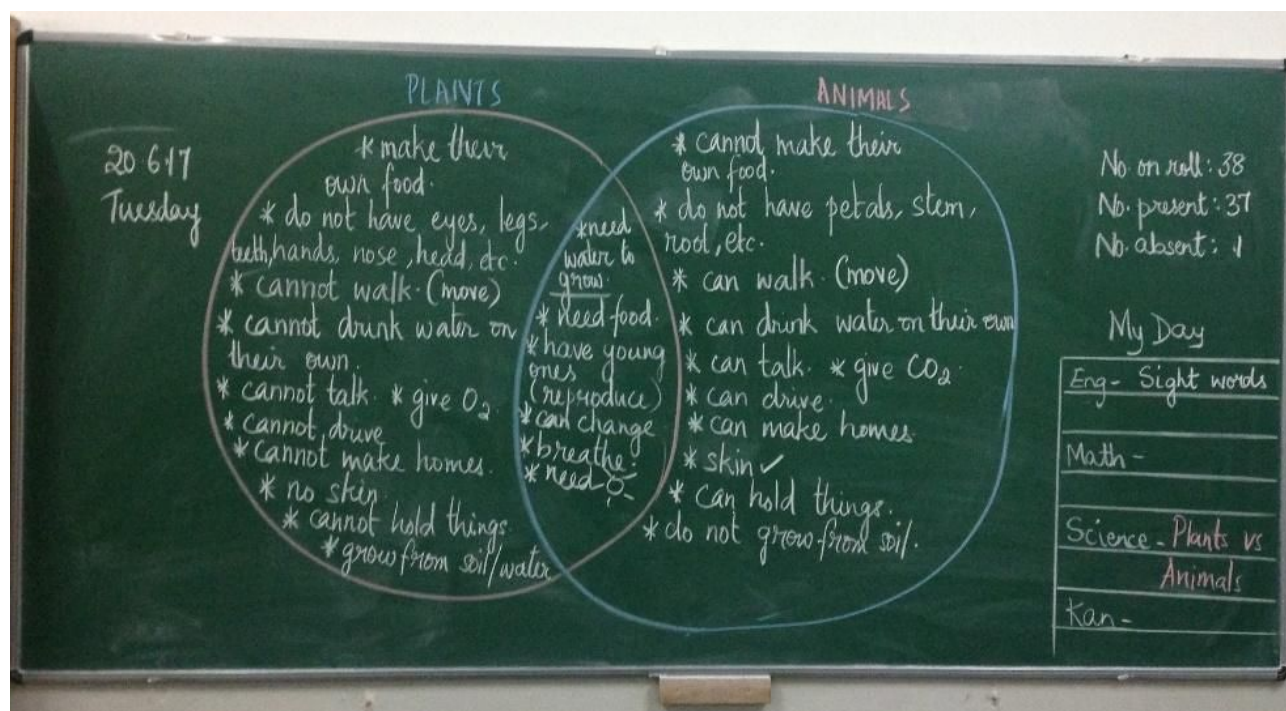 PLANTS
ANIMALS
20 6 17
Tuesday
* make their
own food.
* do not have eyes, legs,
teeth, hands, nose, head, etc.
* cannot walk. (move)
* cannot drink water on
their own.
* cannot talk. * give O₂
* cannot drive
* cannot make homes.
* no skin
* cannot hold things.
* grow from soil/water
* need
water to
grow.
* need food.
* have young
ones
(reproduce)
* can change
* breathe.
* need
* cannot make their
own food.
* do not have petals, stem,
root, etc.
* can walk. (move)
* can drink water on their own
* can talk. * give CO₂.
* can drive.
* can make homes.
* skin ✓
* can hold things.
* do not grow from soil.
No. on roll: 38
No. present: 37
No. absent: 1
My Day
Eng- Sight words
Math-
Science- Plants vs
Animals
Kan-